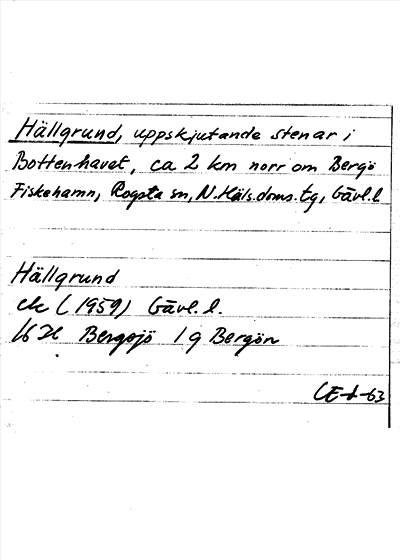 Hällgrund, uppskjutande stenar i
Bottenhavet, ca 2 km norr om Bergö
Fiskehamn, Rogsta sn, N. Häls. doms. tg, Gävl. l
Hällgrund
ek (1959) Gävl. l.
16 H Bergsjö 1 g Bergön
-63